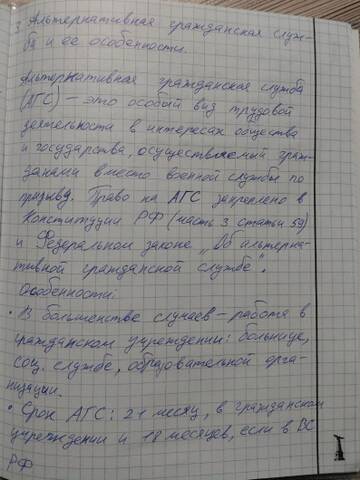 3. Альтернативная гражданская служ-
ба и ее особенности.
Альтернативная гражданская служба
(АГС) – это особый вид трудовой
деятельности в интересах общества
и государства, осуществляемый граж-
данами вместо военной службы по
призыву. Право на АГС закреплено в
Конституции РФ (часть 3 статьи 59)
и Федеральном законе „Об альтерна-
тивной гражданской службе".
Особенности:
• В большенстве случаев – работа в
гражданском учреждении: больнице,
соц. службе, образовательной орга-
низации.
• Срок АГС: 21 месяц, в гражданском
учреждении и 18 месяцев, если в ВС
РФ